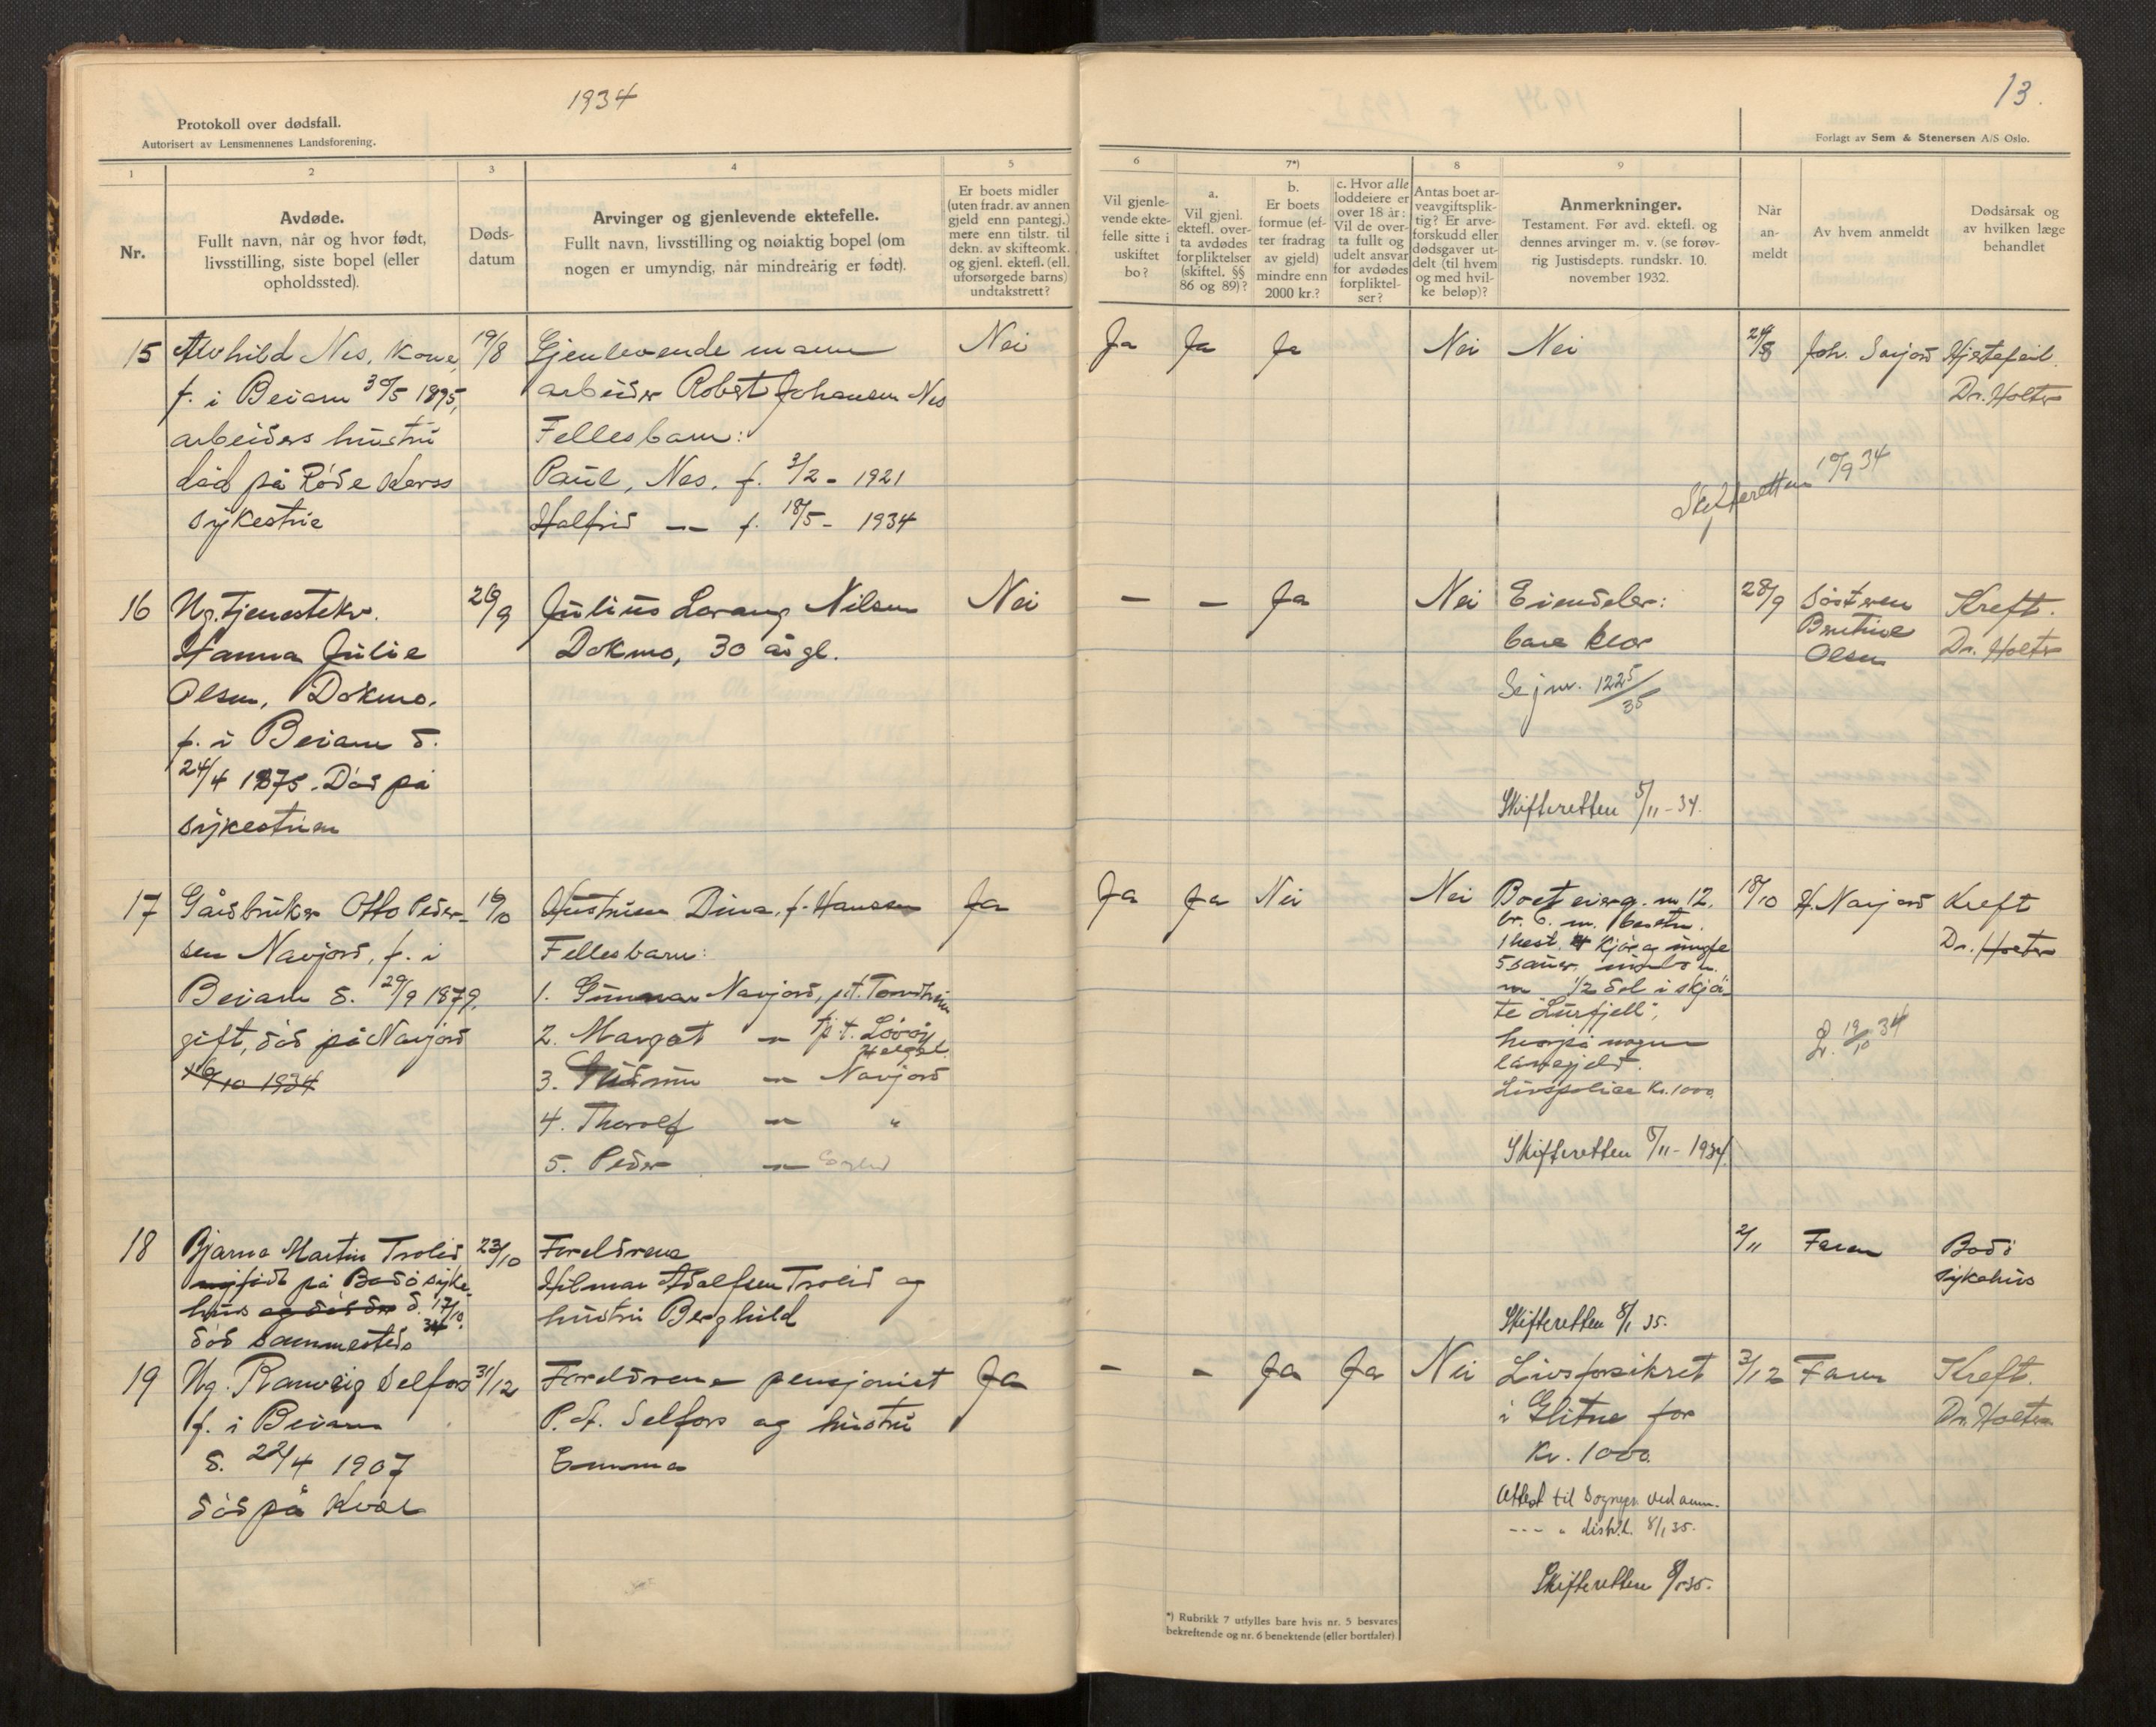 1934
Protokoll over dødsfall.
Autorisert av Lensmennenes Landsforening.
1
2
3
4
5
Nr.
Avdøde.
Fullt navn, når og hvor født,
livsstilling, siste bopel (eller
opholdssted).
Døds-
datum
Arvinger og gjenlevende ektefelle.
Fullt navn, livsstilling og nøiaktig bopel (om
nogen er umyndig, når mindreårig er født).
Er boets midler
(uten fradr. av annen
gjeld enn pantegj.)
mere enn tilstr. til
dekn. av skifteomk.
og gjenl. ektefl. (ell.
uforsørgede barns)
undtakstrett?
15
Alvhild Nes, kone,
f. i Beiarn 30/5 1895,
arbeiders hustru
død på Røde Korss
sykestue
19/8
Gjenlevende mann
arbeider Robert Johansen Nes
Fellesbarn:
Paul, Nes, f. 3/2 - 1921
Halfrid — f. 18/5 - 1934
Nei
16
Ug. tjenestekv.
Hanna Julie
Olsen, Dokmo.
f. i Beiarn d.
24/4 1875. Død på
sykestuen
26/9
Julius Lorang Nilsen
Dokmo, 30 år gl.
Nei
17
Gårdbruker Otto Peder-
sen Navjord, f. i
Beiarn d. 29/9 1879,
gift, død på Navjord
16/10 1934
16/10
Hustruen Dina, f. Hansen
Fellesbarn:
1. Gunnar Navjord, p.t. Trondheim
2. Margot — p.t. Lovøy
Helgel.
3. Gudrun — Navjord
4. Thorolf — "
5. Peder —
Ja
18
Bjarne Martin Trolid
født på Bodø syke-
hus og død den d. 17/10
34
død sammesteds
23/10
Foreldrene
Hilmar Adolfsen Trolid og
hustru Berghild
19
Ug. Ranveig Selfors
f. i Beiarn
d. 22/4 1907
død på Kvæl
31/12
Foreldrene pensjonist
P. A. Selfors og hustru
Emma
Ja
13.
Forlagt av Sem & Stenersen A/S Oslo.
6
7*)
8
9
Vil gjenle-
vende ekte-
felle sitte i
uskiftet
bo?
a.
Vil gjenl.
ektefl. over-
ta avdødes
forpliktelser
(skiftel. §§
86 og 89)?
b.
Er boets
formue (ef-
ter fradrag
av gjeld)
mindre enn
2000 kr.?
c. Hvor alle
loddeiere er
over 18 år:
Vil de over-
ta fullt og
udelt ansvar
for avdødes
forpliktel-
ser?
Antas boet ar-
veavgiftsplik-
tig? Er arve-
forskudd eller
dødsgaver ut-
delt (til hvem
og med hvil-
ke beløp)?
Anmerkninger.
Testament. Før avd. ektefl. og
dennes arvinger m. v. (se forøv-
rig Justisdepts. rundskr. 10.
november 1932.
Når
an-
meldt
Av hvem anmeldt
Dødsårsak og
av hvilken læge
behandlet
Ja Ja Ja Nei Nei
Skifteretten 10/9 34
29/8
Joh. Savjord
Hjertefeil.
Dr. Holter
— — Ja Nei
Eiendeler:
bare klær
Se jnr. 1225/35
Skifteretten 5/11-34.
28/9
Søsteren
Bentine
Olsen
Kreft.
Dr. Holter
Ja Ja Nei Nei
Boet eier g. nr 12,
br. 6. m. besetn.
1 hest, 4 kjør og ungfe
5 sauer,
m 1/2 del i skjø-
te "Lurfjell",
hvorpå nogen
lånegjeld.
Livspolise Kr. 1000.
Skifteretten 5/11-1934.
18/10
H. Navjord
19/10 34
Kreft
Dr. Holter
Skifteretten 8/1 35.
2/11
Faren
Bodø
sykehus
— — Ja Ja Nei
Livsforsikret
i Glitne for
Kr. 1000.
Attest til Sognepr. ved anm.
--- " distr.l. 8/1 35.
Skifteretten 8/1-35.
3/12
Faren
Kreft.
Dr. Holter
*) Rubrikk 7 utfylles bare hvis nr. 5 besvares
bekreftende og nr. 6 benektende (eller bortfaler).